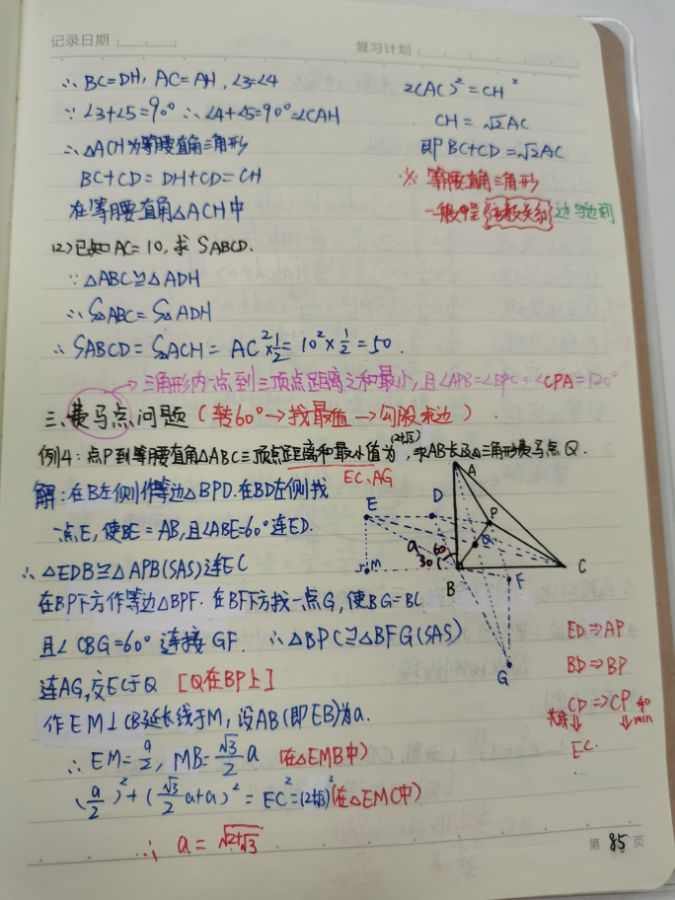 记录日期
复习计划
∴ BC=DH, AC=AH, ∠3=∠4
∵ ∠3+∠5=90° ∴ ∠4+∠5=90°=∠CAH
∴ △ACH为等腰直角三角形
BC+CD=DH+CD=CH
在等腰直角△ACH中
2(AC)²=CH²
CH=√2AC
即BC+CD=√2AC
※ 等腰直角三角形
边与边间
(2)已知AC=10,求SABCD.
∵ △ABC≌△ADH
∴ S△ABC=S△ADH
∴ SABCD=S△ACH=AC²×1/2=10²×1/2=50.
→三角形内一点到三顶点距离之和最小,且∠APB=∠BPC=∠CPA=120°
三、费马点问题(转60°→找最值→勾股求边).
例4:点P到等腰直角△ABC三顶点距离和最小值为(2+√3),求AB长及△三角形费马点Q.
EC、AG
解:在B左侧作等边△BPD.在BD左侧找
一点E,使BE=AB,且∠ABE=60°连ED.
∴ △EDB≌△APB(SAS)连EC
在BP下方作等边△BPF.在BF下方找一点G,使BG=BC
且∠CBG=60° 连接GF. ∴△BPC≌△BFG(SAS)
连AG,交EC于Q [Q在BP上]
作EM⊥CB延长线于M,设AB(即EB)为a.
∴ EM=a/2, MB=√3/2 a (在△EMB中)
(a/2)²+(√3/2 a+a)²=EC²=(2+√3)²(在△EMC中)
∴ a=√2+√3
A
E
D
P
Q
a
60
30
M
B
C
F
G
ED⇒AP
BD⇒BP
CD⇒CP
共线
min
EC.
第 85 页